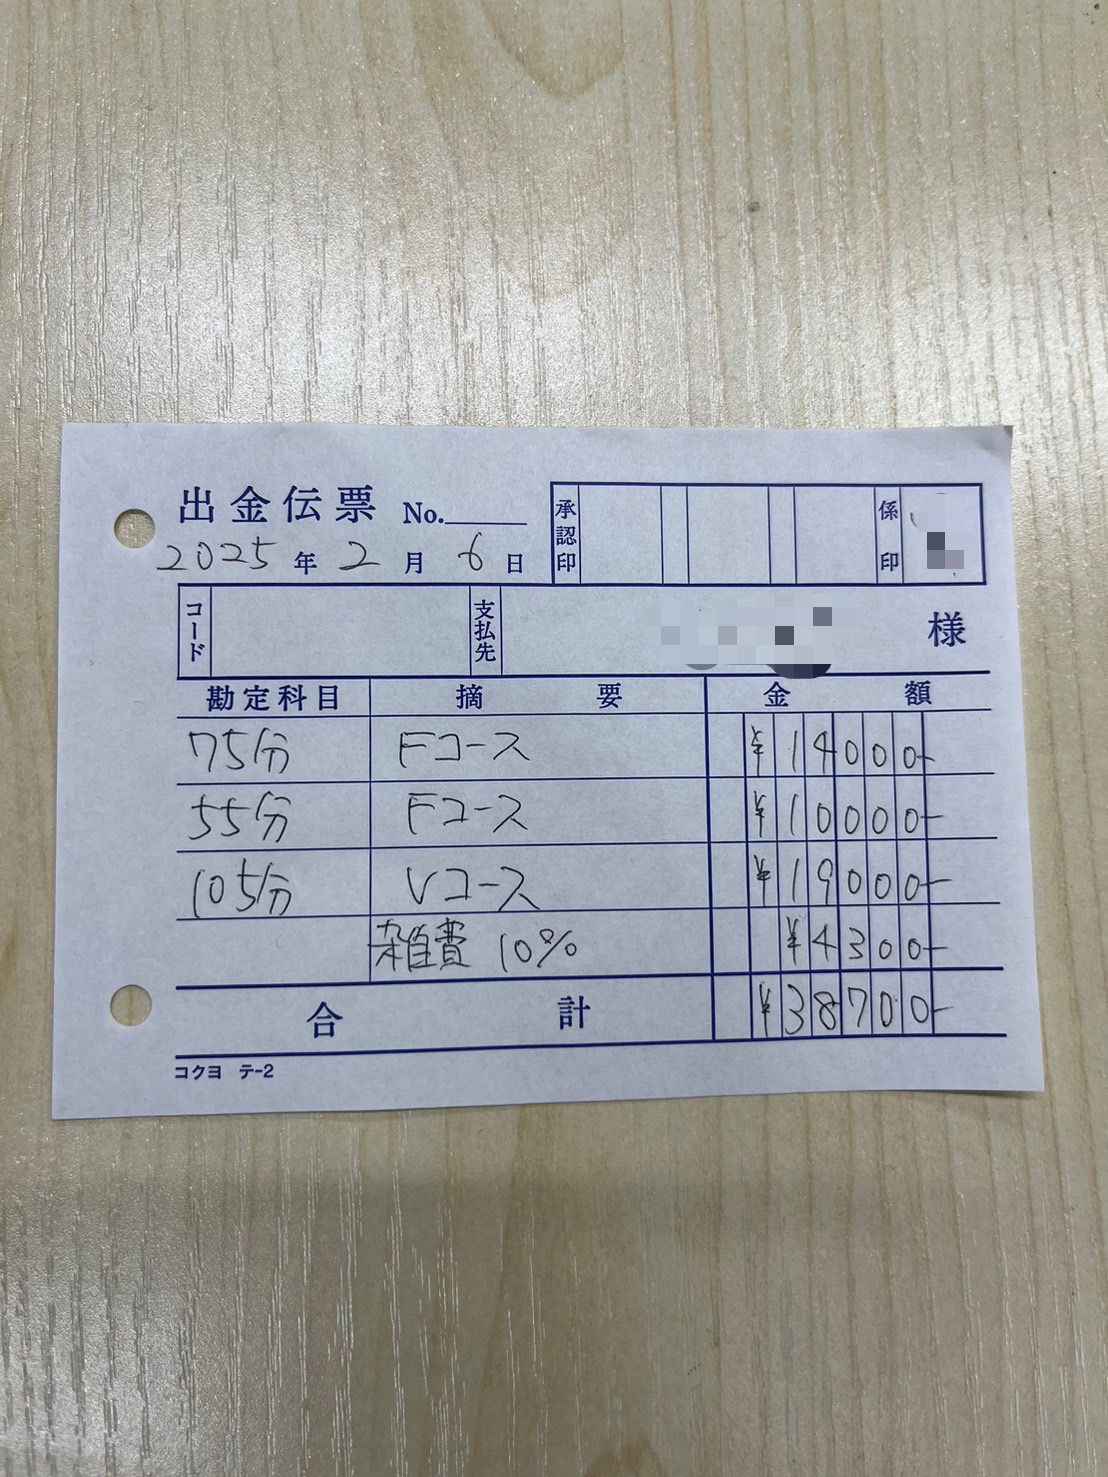 出金伝票 No.
2025年2月6日
承認印
係印
コード
支払先
様
勘定科目 摘要 金額
75分 Fコース ¥14000-
55分 Fコース ¥10000-
105分 Vコース ¥19000-
雑費 10% ¥4300-
合計 ¥38700-
コクヨ テ-2